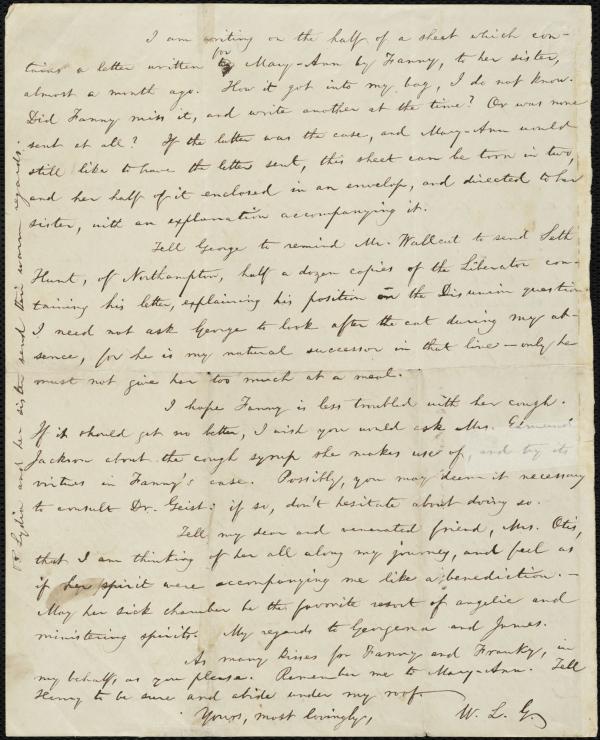 I am writing on the half of a sheet which con-
tains a letter written for Mary-Ann by Fanny, to her sister,
almost a month ago. How it got into my bag, I do not know.
Did Fanny miss it, and write another at the time? Or was none
sent at all? If the latter was the case, and Mary-Ann would
still like to have the letter sent, this sheet can be torn in two,
and her half of it enclosed in an envelop, and directed to her
sister, with an explanation accompanying it.
Tell George to remind Mr. Wallcut to send Seth
Hunt, of Northampton, half a dozen copies of the Liberator con-
taining his letter, explaining his position on the Disunion question
I need not ask George to look after the cat during my ab-
sence, for he is my natural successor in that line—only he
must not give her too much at a meal.
I hope Fanny is less troubled with her cough.
If it should get no better, I wish you would ask Mrs.
Jackson about the cough syrup she makes use of, and try its
virtues in Fanny's case. Possibly, you may deem it necessary
to consult Dr. Geist: if so, don't hesitate about doing so.
Tell my dear and venerated friend, Mrs. Otis,
that I am thinking of her all along my journey, and feel as
if her spirit were accompanying me like a benediction.—
May her sick chamber be the favorite resort of angelic and
ministering spirits. My regards to Georgena and James.
As many kisses for Fanny and Franky, in
my behalf, as you please. Remember me to Mary-Ann. Tell
Henry to be sure and abide under my roof.
Yours, most lovingly, W. L. G.
Lydia and her sister send their warm regards.